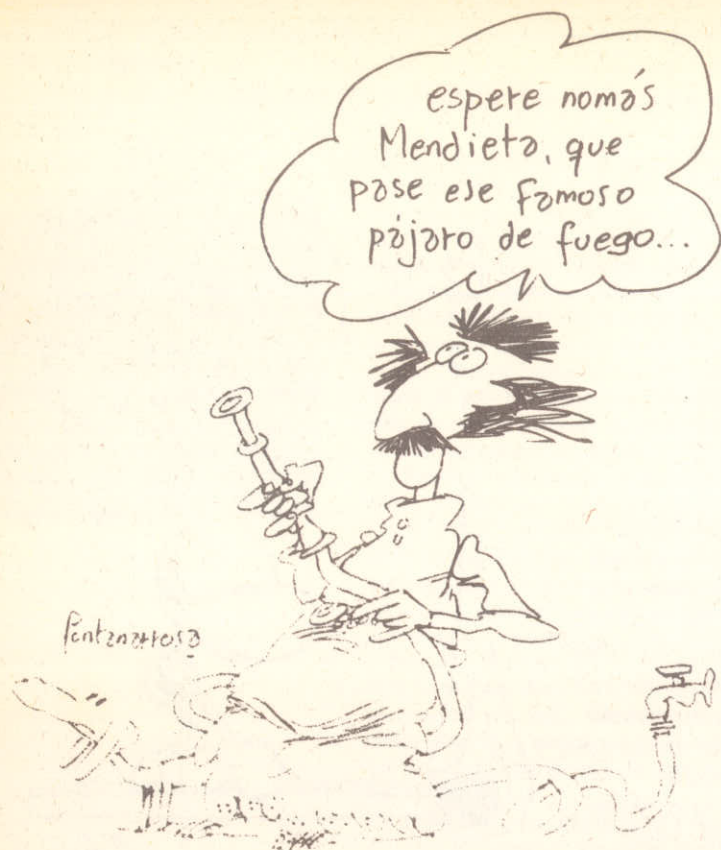 espere nomás
Mendieta, que
pase ese famoso
pájaro de fuego...
Fontanarrosa